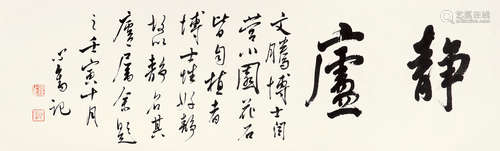 靜廬
文騰博士閒
營小園花石
皆自植者
博士性好靜
故以靜名其
廬屬余題
之壬寅十月
心畬記
易拍全球